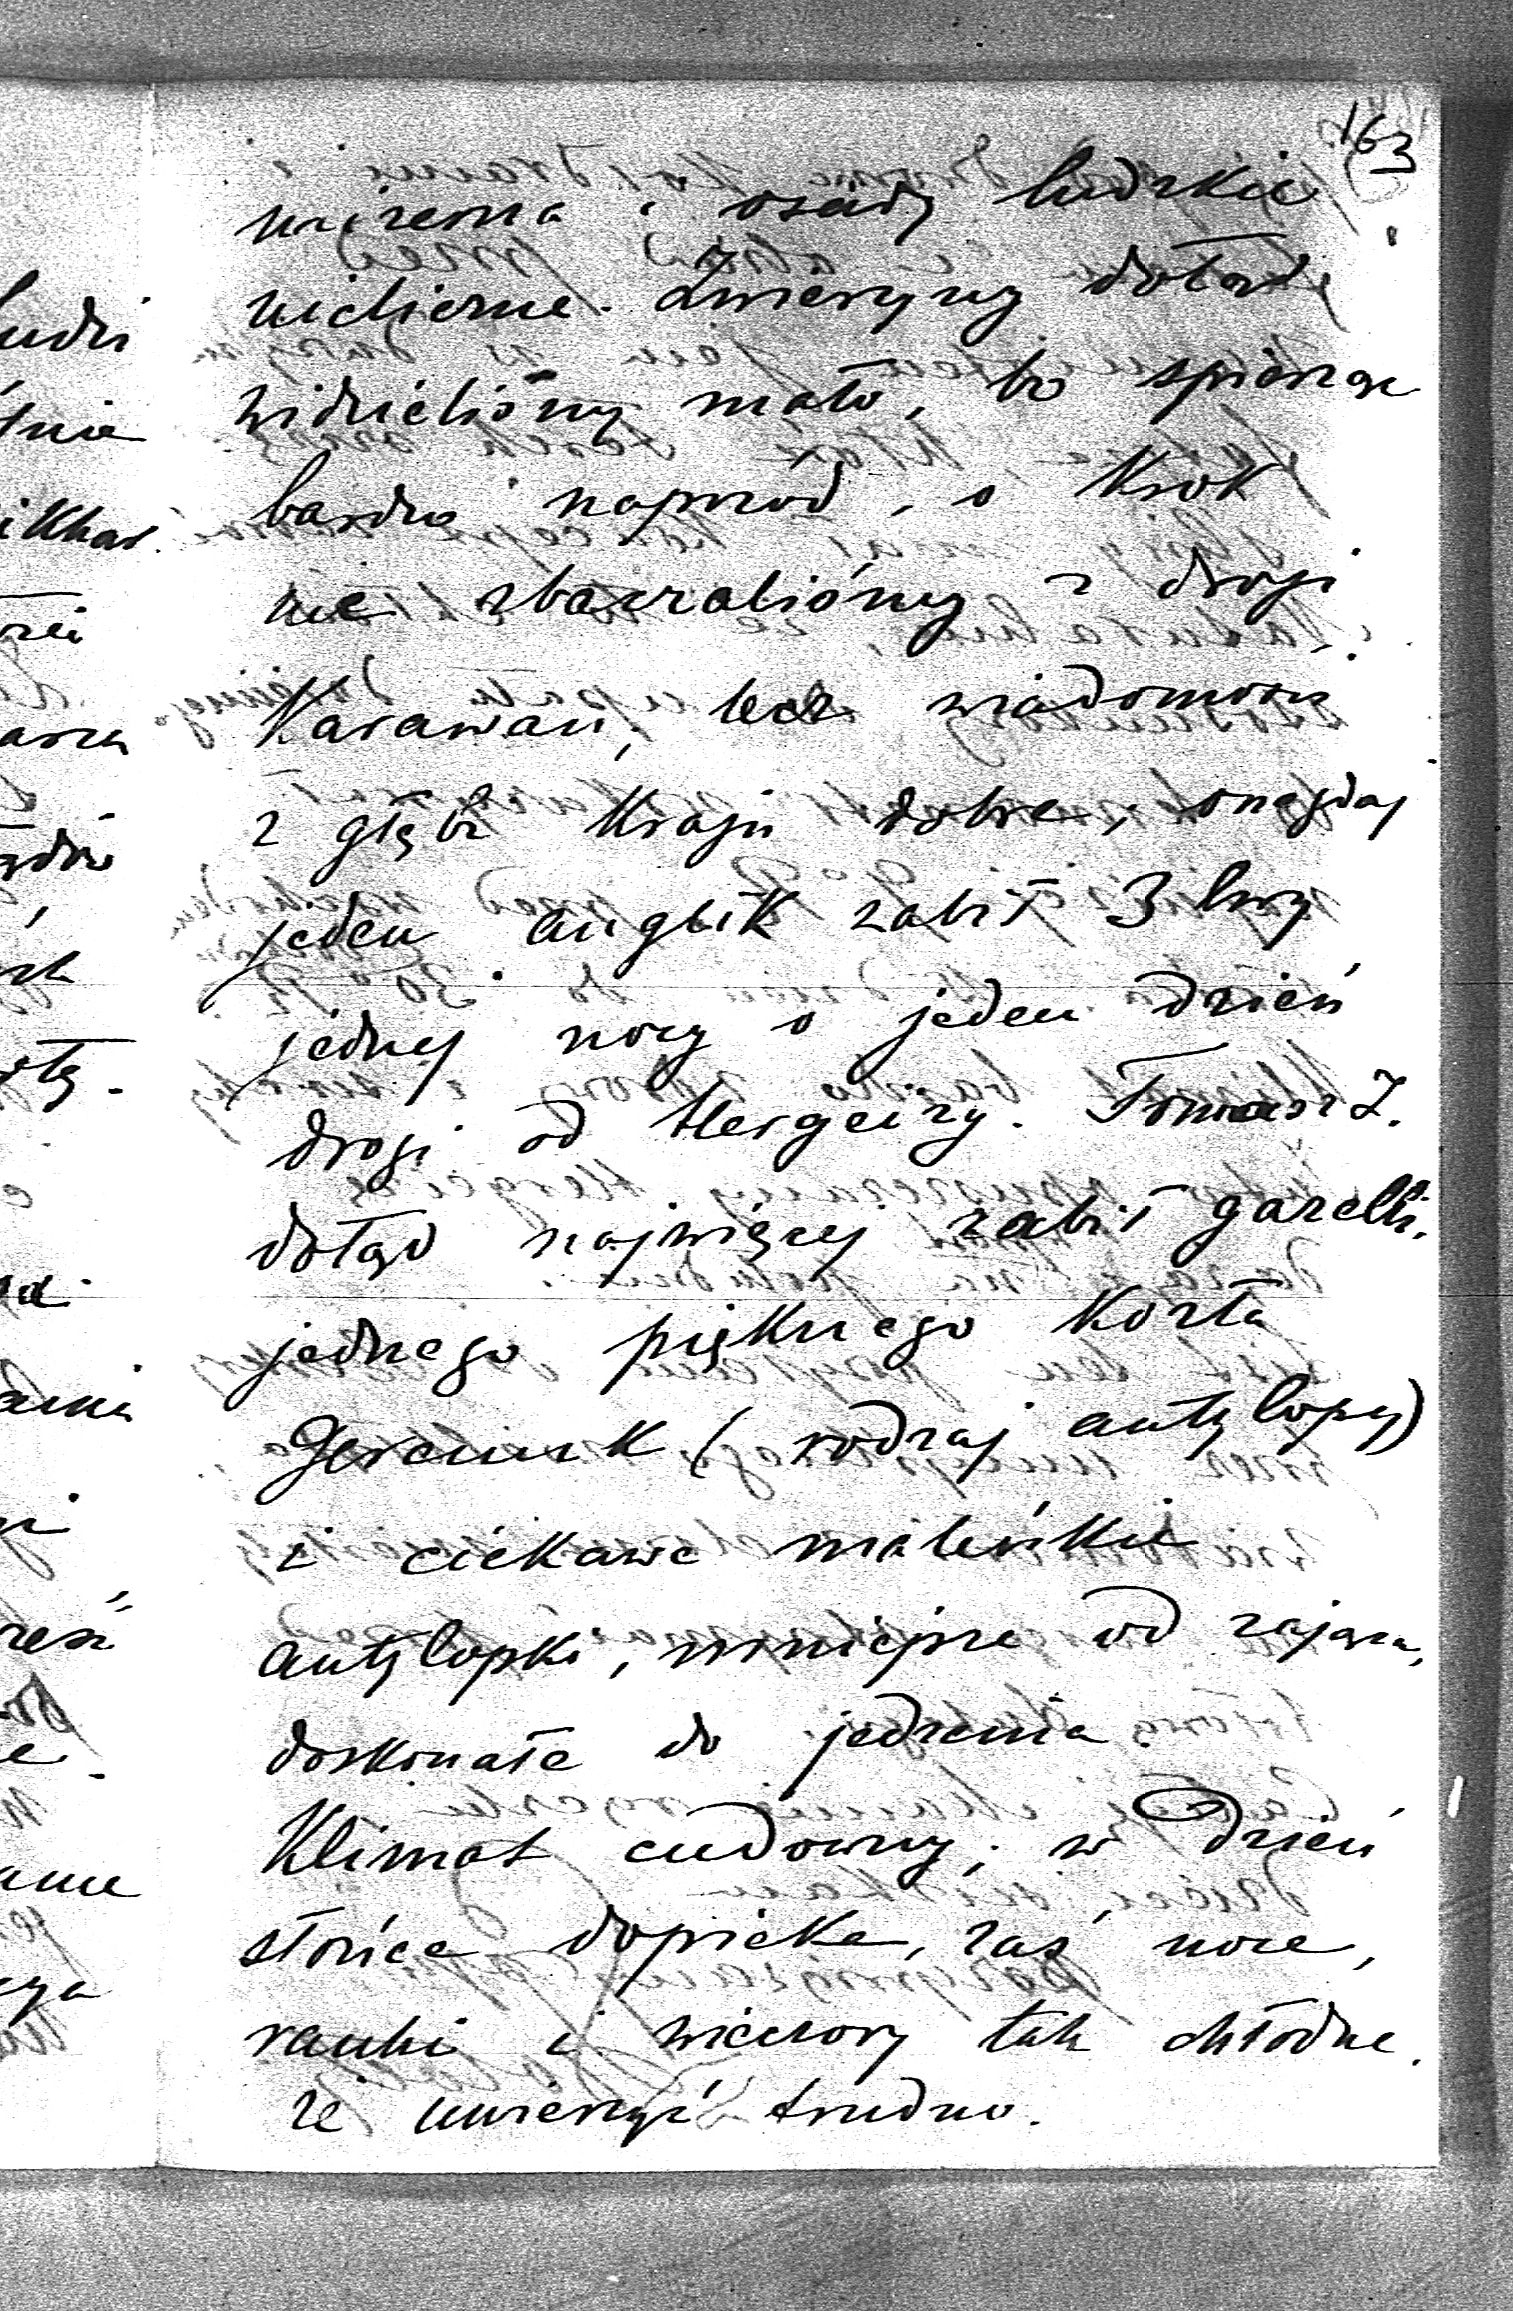 163
i osady ludzkie
nieliczne. Zwierzyny dotąd
widzieliśmy mało, bo spiesząc
bardzo naprzód, o krok
nie zbaczaliśmy z drogi
Karawan, lecz wiadomości
z głębi Kraju dobre, onegdaj
jeden anglik zabił 3 lwy
jednej nocy o jeden dzień
drogi od Hergeizy. Tomasz Z.
dotąd najwięcej zabił gazelli,
jednego pięknego Kozła
Gerenuk (rodzaj antylopy)
i ciekawe maleńkie
antylopki, mniejsze od zająca,
doskonałe do jedzenia.
Klimat cudowny; w dzień
słońce dopieka, zaś noce,
ranki i wieczory tak chłodne
że uwierzyć trudno.